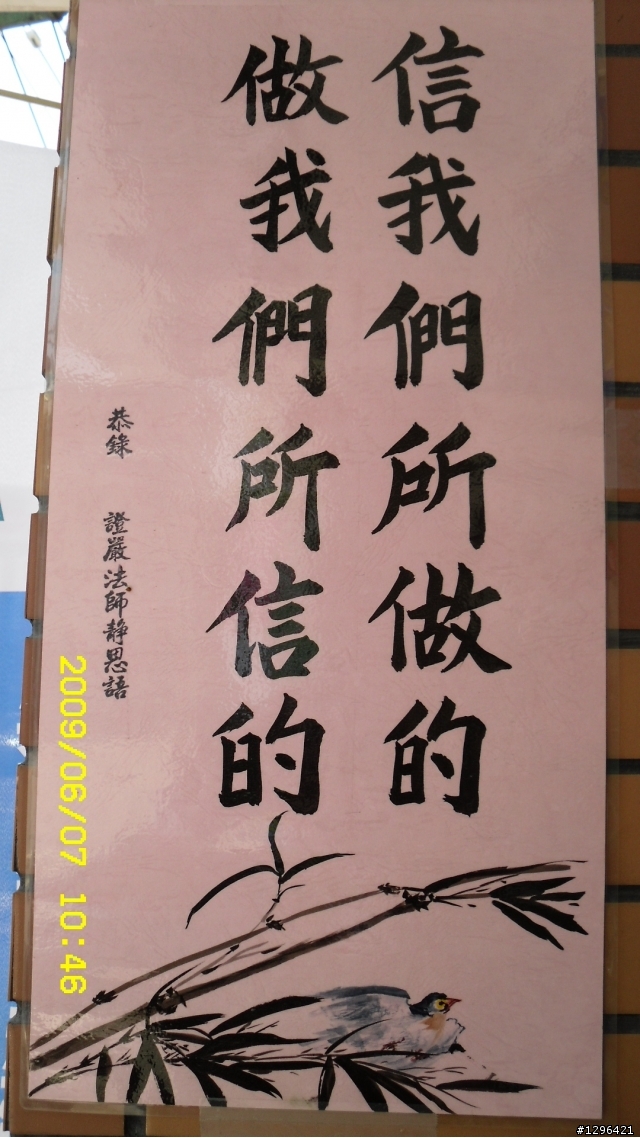 信我們所做的
做我們所信的
恭錄 證嚴法師靜思語
2009/06/07 10:46
#1296421